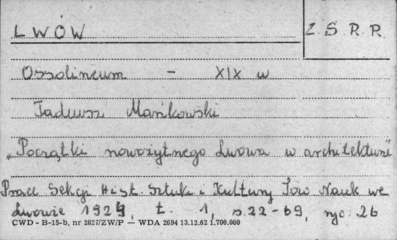 LWÓW
Z.S.R.R.
Ossolineum - XIX w
Tadeusz Mańkowski
„Początki nowożytnego Lwowa w architekturze"
Prace Sekcji Hist. Sztuki i Kultury Tow. Nauk we
Lwowie 1924, t. 1, s.22-69, ryc. 26
CWD - B-15-b, nr 2827/ZW/P — WDA 2694 13.12.62 1.700.000